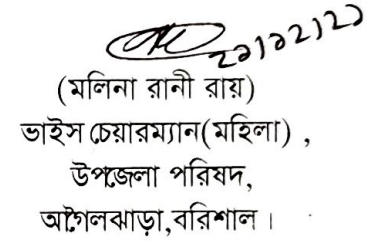 ২১/১২/২১
(মলিনা রানী রায়)
ভাইস চেয়ারম্যান(মহিলা) ,
উপজেলা পরিষদ,
আগৈলঝাড়া,বরিশাল ।